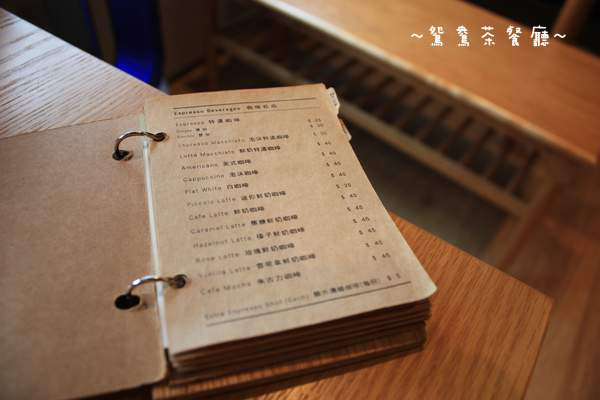 ~鴛鴦茶餐廳~
Espresso Beverages 咖啡飲品
Espresso 特濃咖啡
Single 單份 $
Double 雙份 $ 30
Espresso Macchiato 泡沫特濃咖啡 $ 30
Latte Macchiato 鮮奶特濃咖啡 $ 45
Americano 美式咖啡 $ 40
Cappuccino 泡沫咖啡 $ 45
Flat White 白咖啡 $ 45
Piccolo Latte 迷你鮮奶咖啡 $ 20
Cafe Latte 鮮奶咖啡 $ 45
Caramel Latte 焦糖鮮奶咖啡 $ 45
Hazelnut Latte 榛子鮮奶咖啡 $ 45
Rose Latte 玫瑰鮮奶咖啡 $ 45
Vanilla Latte 雲呢拿鮮奶咖啡 $ 45
Cafe Mocha 朱古力咖啡 $ 45
Extra Espresso Shot (Each) 額外濃縮咖啡(每份) $ 5